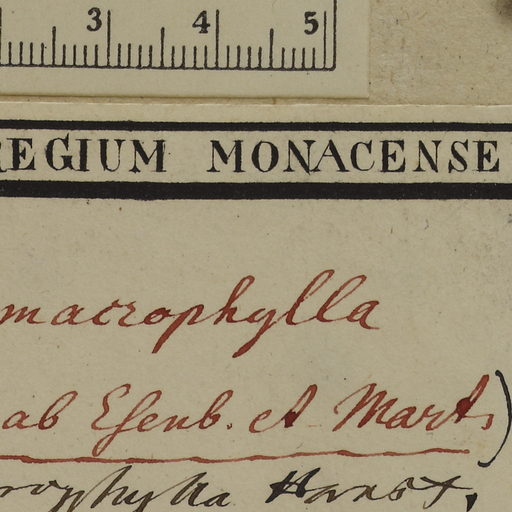 3 4 5
REGIUM MONACENSE
macrophylla
ab Esenb. et Mart.)
rophylla